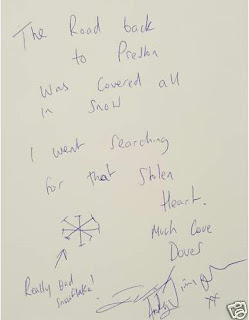 The Road back
to Preston
Was Covered all
in Snow
I went Searching
for that Stolen
Heart.
Much Love
Doves
Really Bad
Snowflake!
Andy
Jimi
xx